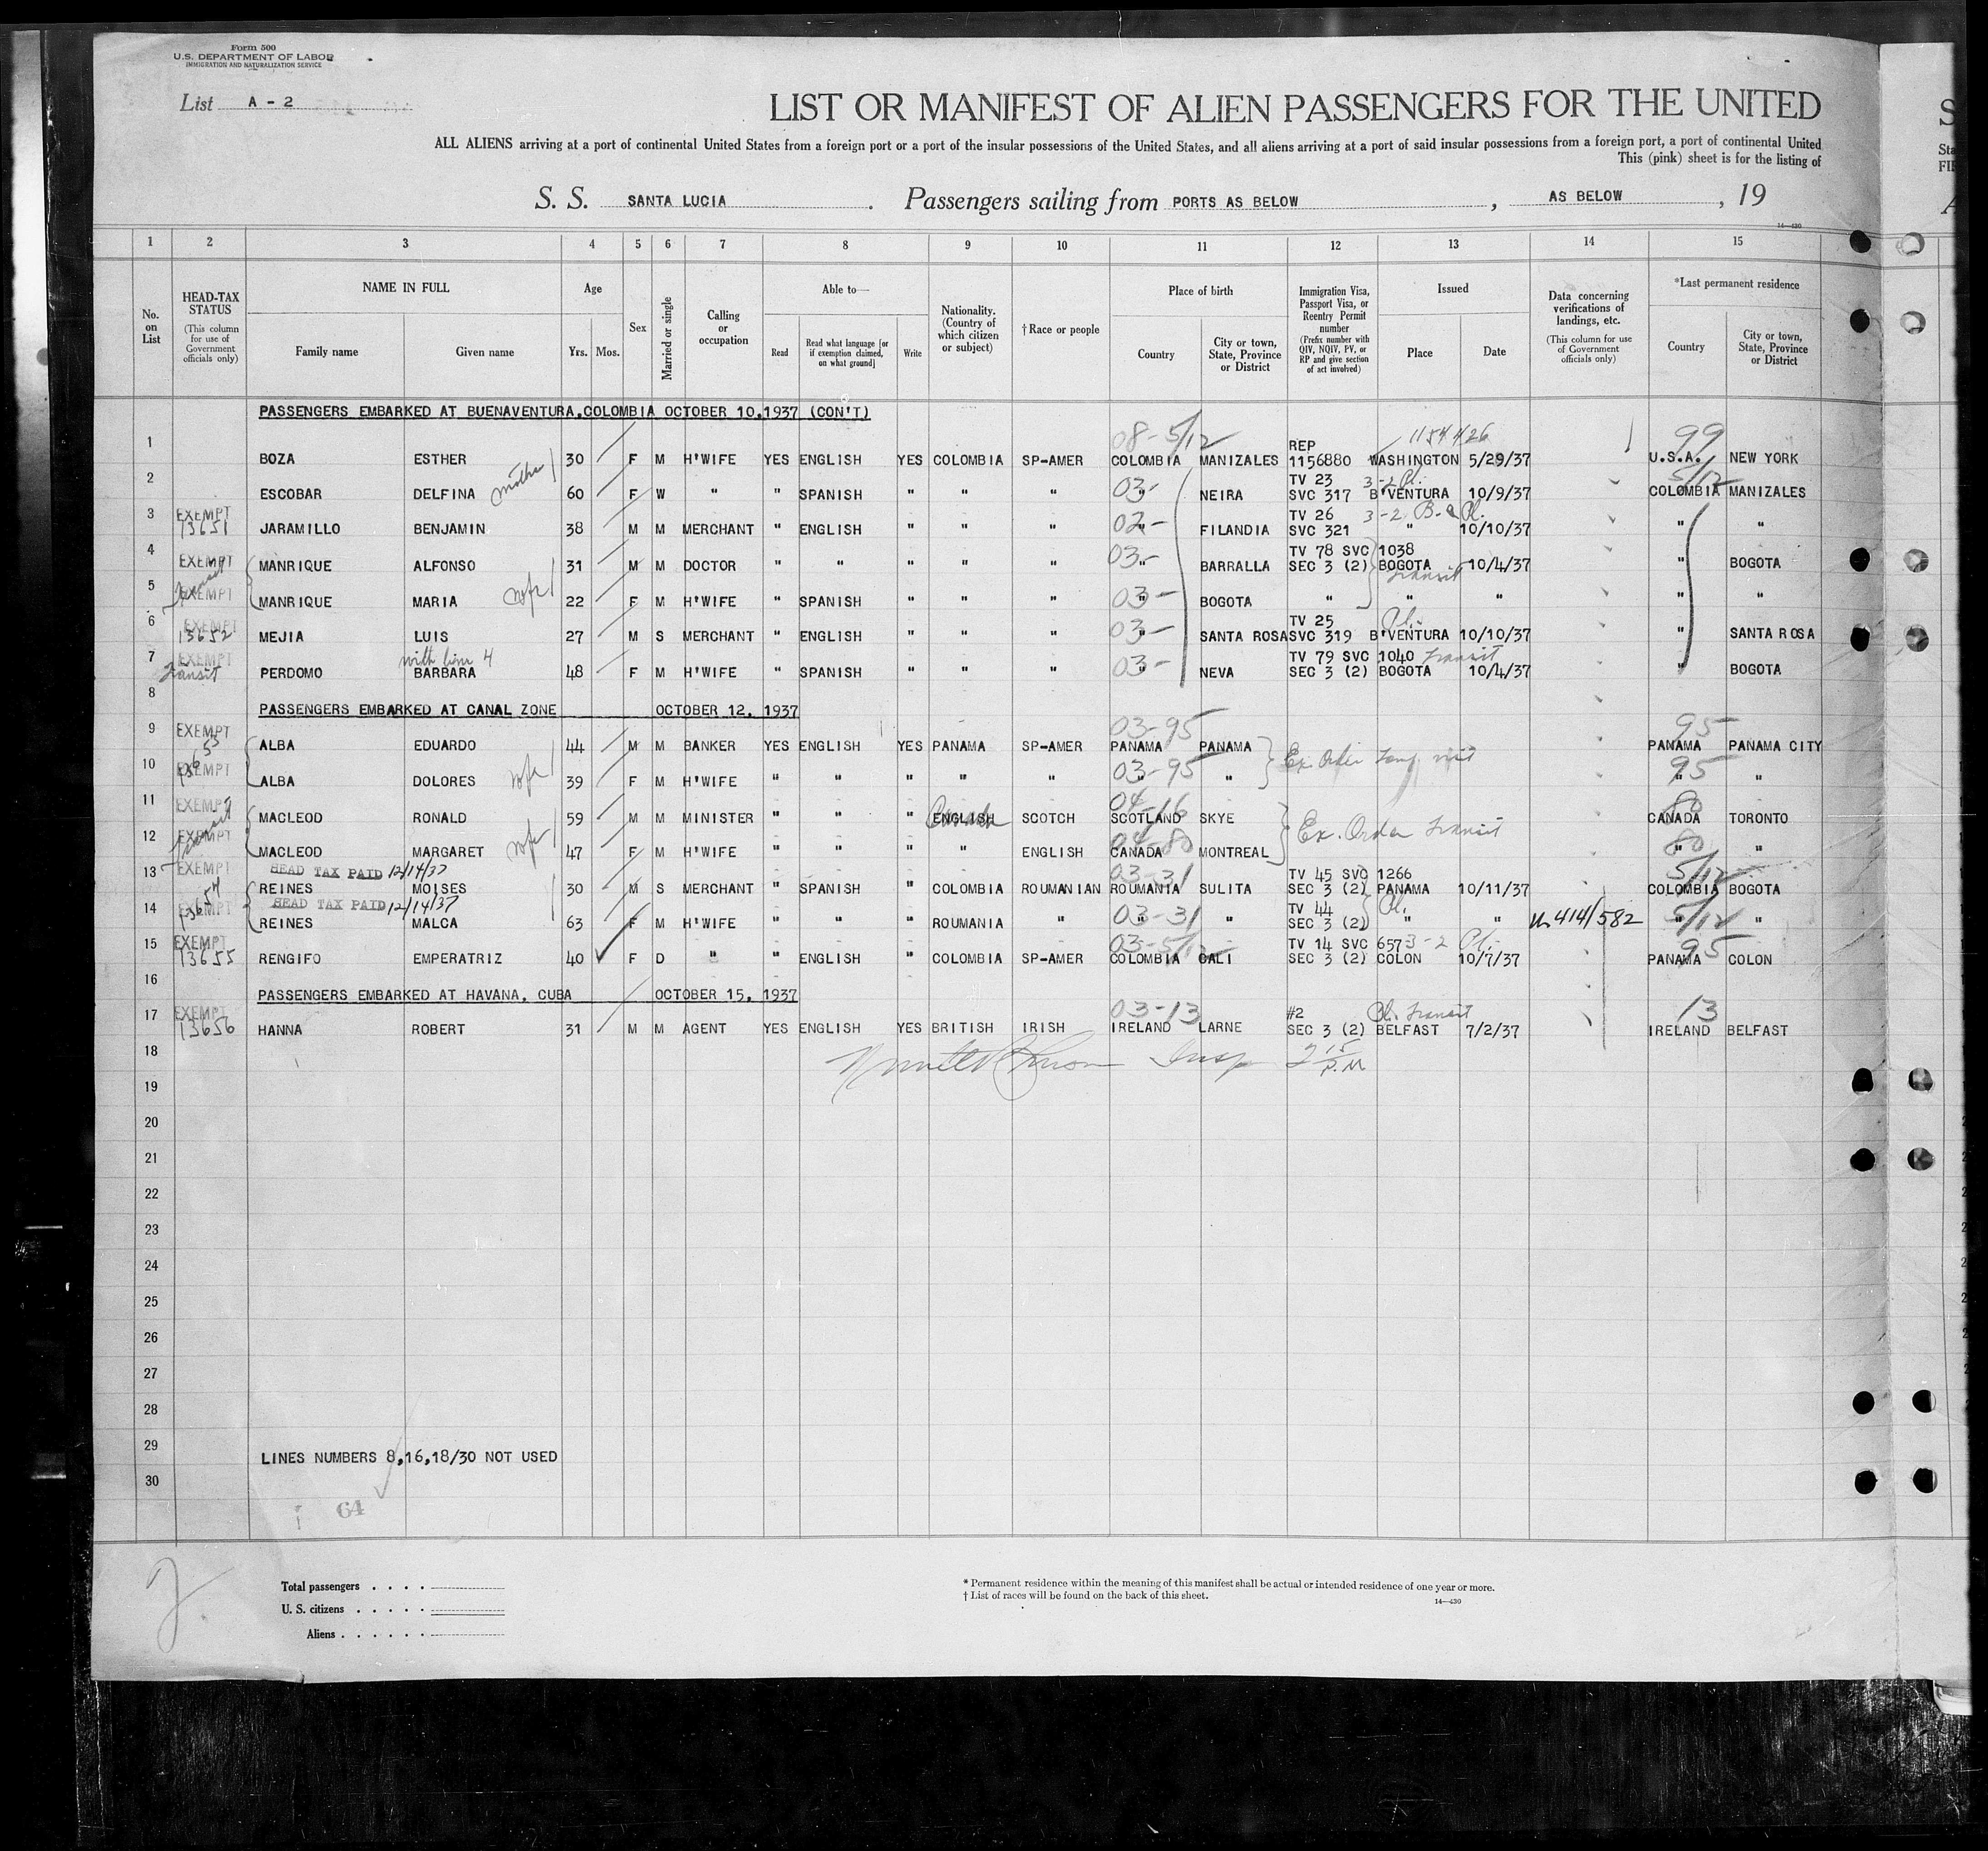 Form 500
U.S. DEPARTMENT OF LABOR
IMMIGRATION AND NATURALIZATION SERVICE
List A - 2
LIST OR MANIFEST OF ALIEN PASSENGERS FOR THE UNITED
ALL ALIENS arriving at a port of continental United States from a foreign port or a port of the insular possessions of the United States, and all aliens arriving at a port of said insular possessions from a foreign port, a port of continental United
This (pink) sheet is for the listing of
S. S. SANTA LUCIA . Passengers sailing from PORTS AS BELOW , AS BELOW , 19
14—430
1 2 3 4 5 6 7 8 9 10 11 12 13 14 15
No. on List
HEAD-TAX STATUS (This column for use of Government officials only)
NAME IN FULL Family name Given name
Age Yrs. Mos.
Sex
Married or single
Calling or occupation
Able to— Read Read what language [or if exemption claimed, on what ground] Write
Nationality. (Country of which citizen or subject)
†Race or people
Place of birth Country City or town, State, Province or District
Immigration Visa, Passport Visa, or Reentry Permit number (Prefix number with QIV, NQIV, PV, or RP and give section of act involved)
Issued Place Date
Data concerning verifications of landings, etc. (This column for use of Government officials only)
*Last permanent residence Country City or town, State, Province or District
PASSENGERS EMBARKED AT BUENAVENTURA,COLOMBIA OCTOBER 10,1937 (CON'T)
08-5/12 REP 1154426 99
1 BOZA ESTHER 30 F M H'WIFE YES ENGLISH YES COLOMBIA SP-AMER COLOMBIA MANIZALES 1156880 WASHINGTON 5/29/37 U.S.A. NEW YORK
mother TV 23 3-2 Pl. 5/12
2 ESCOBAR DELFINA 60 F W " " SPANISH " " " 03- " NEIRA SVC 317 B'VENTURA 10/9/37 COLOMBIA MANIZALES
EXEMPT TV 26 3-2 Pl.
3 13651 JARAMILLO BENJAMIN 38 M M MERCHANT " ENGLISH " " " 02- " FILANDIA SVC 321 " 10/10/37 " "
TV 78 SVC 1038
4 EXEMPT MANRIQUE ALFONSO 31 M M DOCTOR " " " " " 03- " BARRALLA SEC 3 (2) BOGOTA 10/4/37 " BOGOTA
Transit wife Transit
5 EXEMPT MANRIQUE MARIA 22 F M H'WIFE " SPANISH " " " 03- " BOGOTA " " " " "
EXEMPT TV 25 Pl.
6 13652 MEJIA LUIS 27 M S MERCHANT " ENGLISH " " " 03- " SANTA ROSA SVC 319 B'VENTURA 10/10/37 " SANTA ROSA
EXEMPT with line 4 TV 79 SVC 1040 Transit
7 Transit PERDOMO BARBARA 48 F M H'WIFE " SPANISH " " " 03- " NEVA SEC 3 (2) BOGOTA 10/4/37 " BOGOTA
8 PASSENGERS EMBARKED AT CANAL ZONE OCTOBER 12, 1937
EXEMPT 03-95 95
9 ALBA EDUARDO 44 M M BANKER YES ENGLISH YES PANAMA SP-AMER PANAMA PANAMA Ex Order Temp. visit PANAMA PANAMA CITY
13653 EXEMPT wife 03-95 95
10 ALBA DOLORES 39 F M H'WIFE " " " " " " " " "
EXEMPT Canada 04-16 80
11 MACLEOD RONALD 59 M M MINISTER " " " ENGLISH SCOTCH SCOTLAND SKYE Ex. Order Transit CANADA TORONTO
EXEMPT Transit wife 04-80 80
12 MACLEOD MARGARET 47 F M H'WIFE " " " " ENGLISH CANADA MONTREAL " "
EXEMPT HEAD TAX PAID 12/14/37 03-31 TV 45 SVC 1266 5/12
13 REINES MOISES 30 M S MERCHANT " SPANISH " COLOMBIA ROUMANIAN ROUMANIA SULITA SEC 3 (2) PANAMA 10/11/37 COLOMBIA BOGOTA
13654 EXEMPT HEAD TAX PAID 12/14/37 03-31 TV 44 Pl. 5/12
14 REINES MALCA 63 F M H'WIFE " " " ROUMANIA " " " SEC 3 (2) " " 414/582 " "
EXEMPT 03-5/12 TV 14 SVC 657 3-2 Pl. 95
15 13655 RENGIFO EMPERATRIZ 40 F D " " ENGLISH " COLOMBIA SP-AMER COLOMBIA CALI SEC 3 (2) COLON 10/7/37 PANAMA COLON
16 PASSENGERS EMBARKED AT HAVANA, CUBA OCTOBER 15, 1937
EXEMPT 03-13 #2 Pl. Transit 13
17 13656 HANNA ROBERT 31 M M AGENT YES ENGLISH YES BRITISH IRISH IRELAND LARNE SEC 3 (2) BELFAST 7/2/37 IRELAND BELFAST
18 Insp 2 15 P.M
19
20
21
22
23
24
25
26
27
28
29 LINES NUMBERS 8,16,18/30 NOT USED
30
64
2.
Total passengers . . . .
U. S. citizens . . . . .
Aliens . . . . . .
* Permanent residence within the meaning of this manifest shall be actual or intended residence of one year or more.
† List of races will be found on the back of this sheet.
14—430